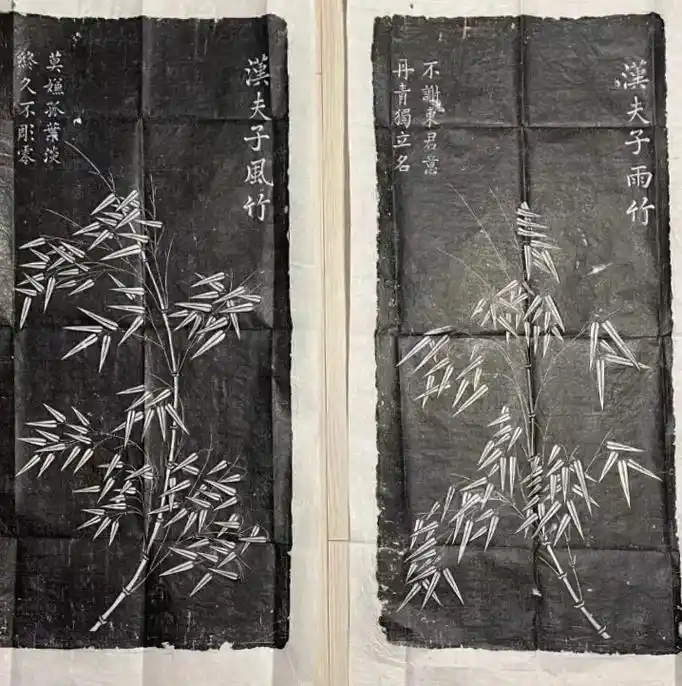 漢夫子雨竹
不謝東君意
丹青獨立名
漢夫子風竹
莫嫌孤葉淡
終久不彫零